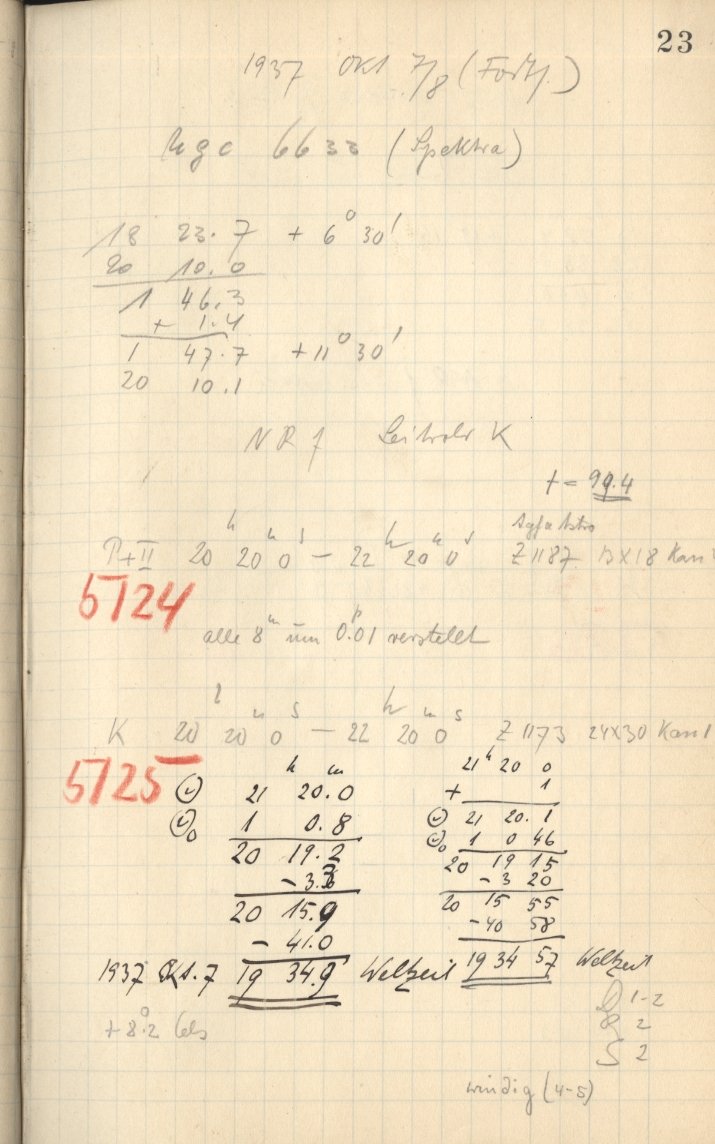 23
1937 Okt 7/8 (Forts.)
Ngc 6633 (Spektra)
18 23.7 + 6° 30'
20 10.0
1 46.3
+ 1.4
1 47.7 + 11° 30'
20 10.1
NR f Leitrohr K
t = 99.4
P+II 20ʰ 20ᵐ 0ˢ — 22ʰ 20ᵐ 0ˢ Z 1187 13X18
5124
alle 8ᵐ um 0.01 verstellt
K 20ʰ 20ᵐ 0ˢ — 22ʰ 20ᵐ 0ˢ Z 1173 24X30
5125
h m 21ʰ 20 0
☉ 21 20.0 + 1
☉₀ 1 0.8 ☉ 21 20. 1
20 19.2 ☉₀ 1 0 46
-3.3 20 19 15
20 15.9 -3 20
- 41.0 20 15 55
-40 58
1937 Okt. 7 19 34.9 Weltzeit 19 34 57 Weltzeit
+8°.2 Cels
1-2
2
S 2
windig (4-5)